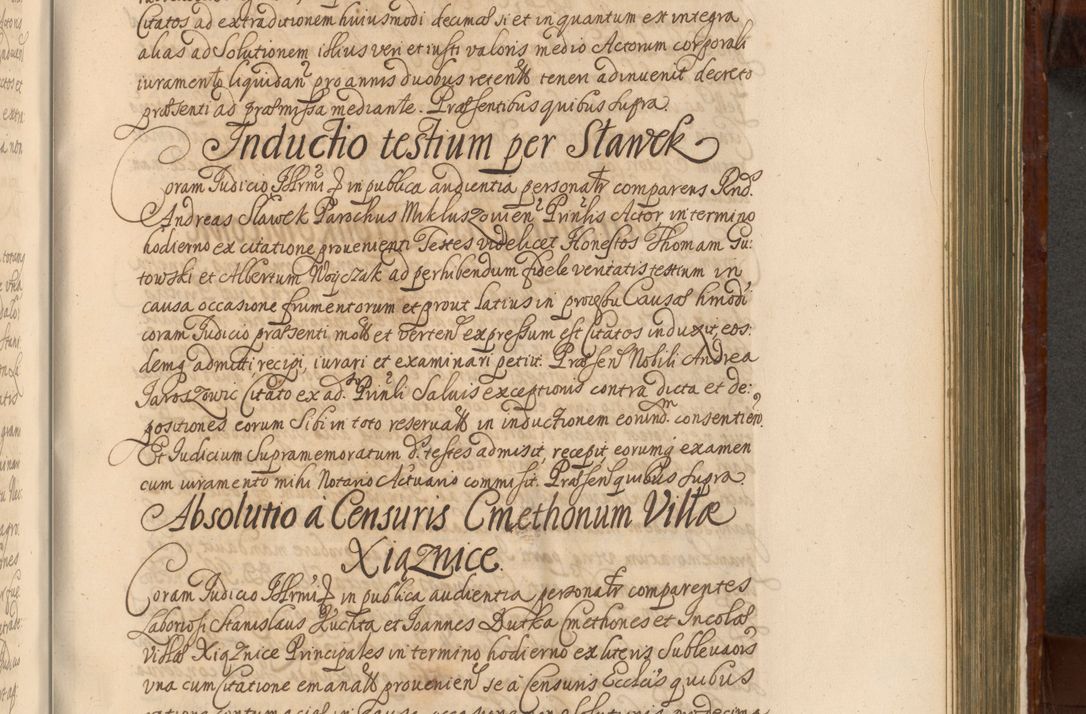 Citatos ad extraditionem huiusmodi decimae si et in quantum ex integra
alias ad Solutionem illius veri et iusti valoris medio Actorum corporali
iuramento liquidan pro annis duobus retent teneri adinvenit decreto
praesenti ad praemissa mediante. Praesentibus quibus supra.
Inductio testium per Slawek
Coram Judicio Illrmi in publica audientia personatr comparens Rnd
Andreas Slawek Parochus Mikluszovien Prinlis Actor in termino
hodierno ex citatione provenienti Testes videlicet Honestos Thomam Gu-
towski et Albertum Woyczak ad perhibendum fidele veritatis testium in
causa occasione frumentorum et prout latius in processu Causae hmodi
coram Judicio praesenti mot et verten expressum est Citatos induxit eos-
demq admitti recipi, iurari et examinari petiit. Praesen Nobili Andrea
Jaroszowic Citato ex ad. Prinli Salvis exceptionis contra dicta et de-
positiones eorum Sibi in toto reservat in inductionem eorund consentien
Et Judicium Supramemoratum d. testes admisit, recepit eorumq examen
cum iuramento mihi Notario Actuario commisit. Praesen quibus supra.
Absolutio a Censuris Cmethonum Villae
Xiąznice.
Coram Judicio Illrmi in publica audientia personatr comparentes
Laboriosi Stanislaus Kuchta et Joannes Dutka Cmethones et Incolae
villae Xiąznice Principales in termino hodierno ex literis Sublevaors
una cum Citatione emanat provenien se a Censuris Ecclcis quibus